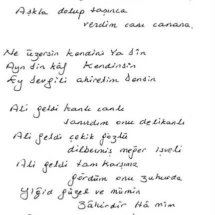 Aşkla dolup taşınca
verdim canı canana.
Ne üzersin kendini Ya Sin
Ayn sin kâf Kendinsin
Ey sevgili ahiretim Sensin
Ali geldi kanlı canlı
sanırdım onu delikanlı
Ali geldi çekik gözlü
dilbermiş meğer işveli
Ali geldi tam karşıma
gördüm onu Zuhurda
Yiğid güzel ve mümin
Zâhirdir Hâ mim